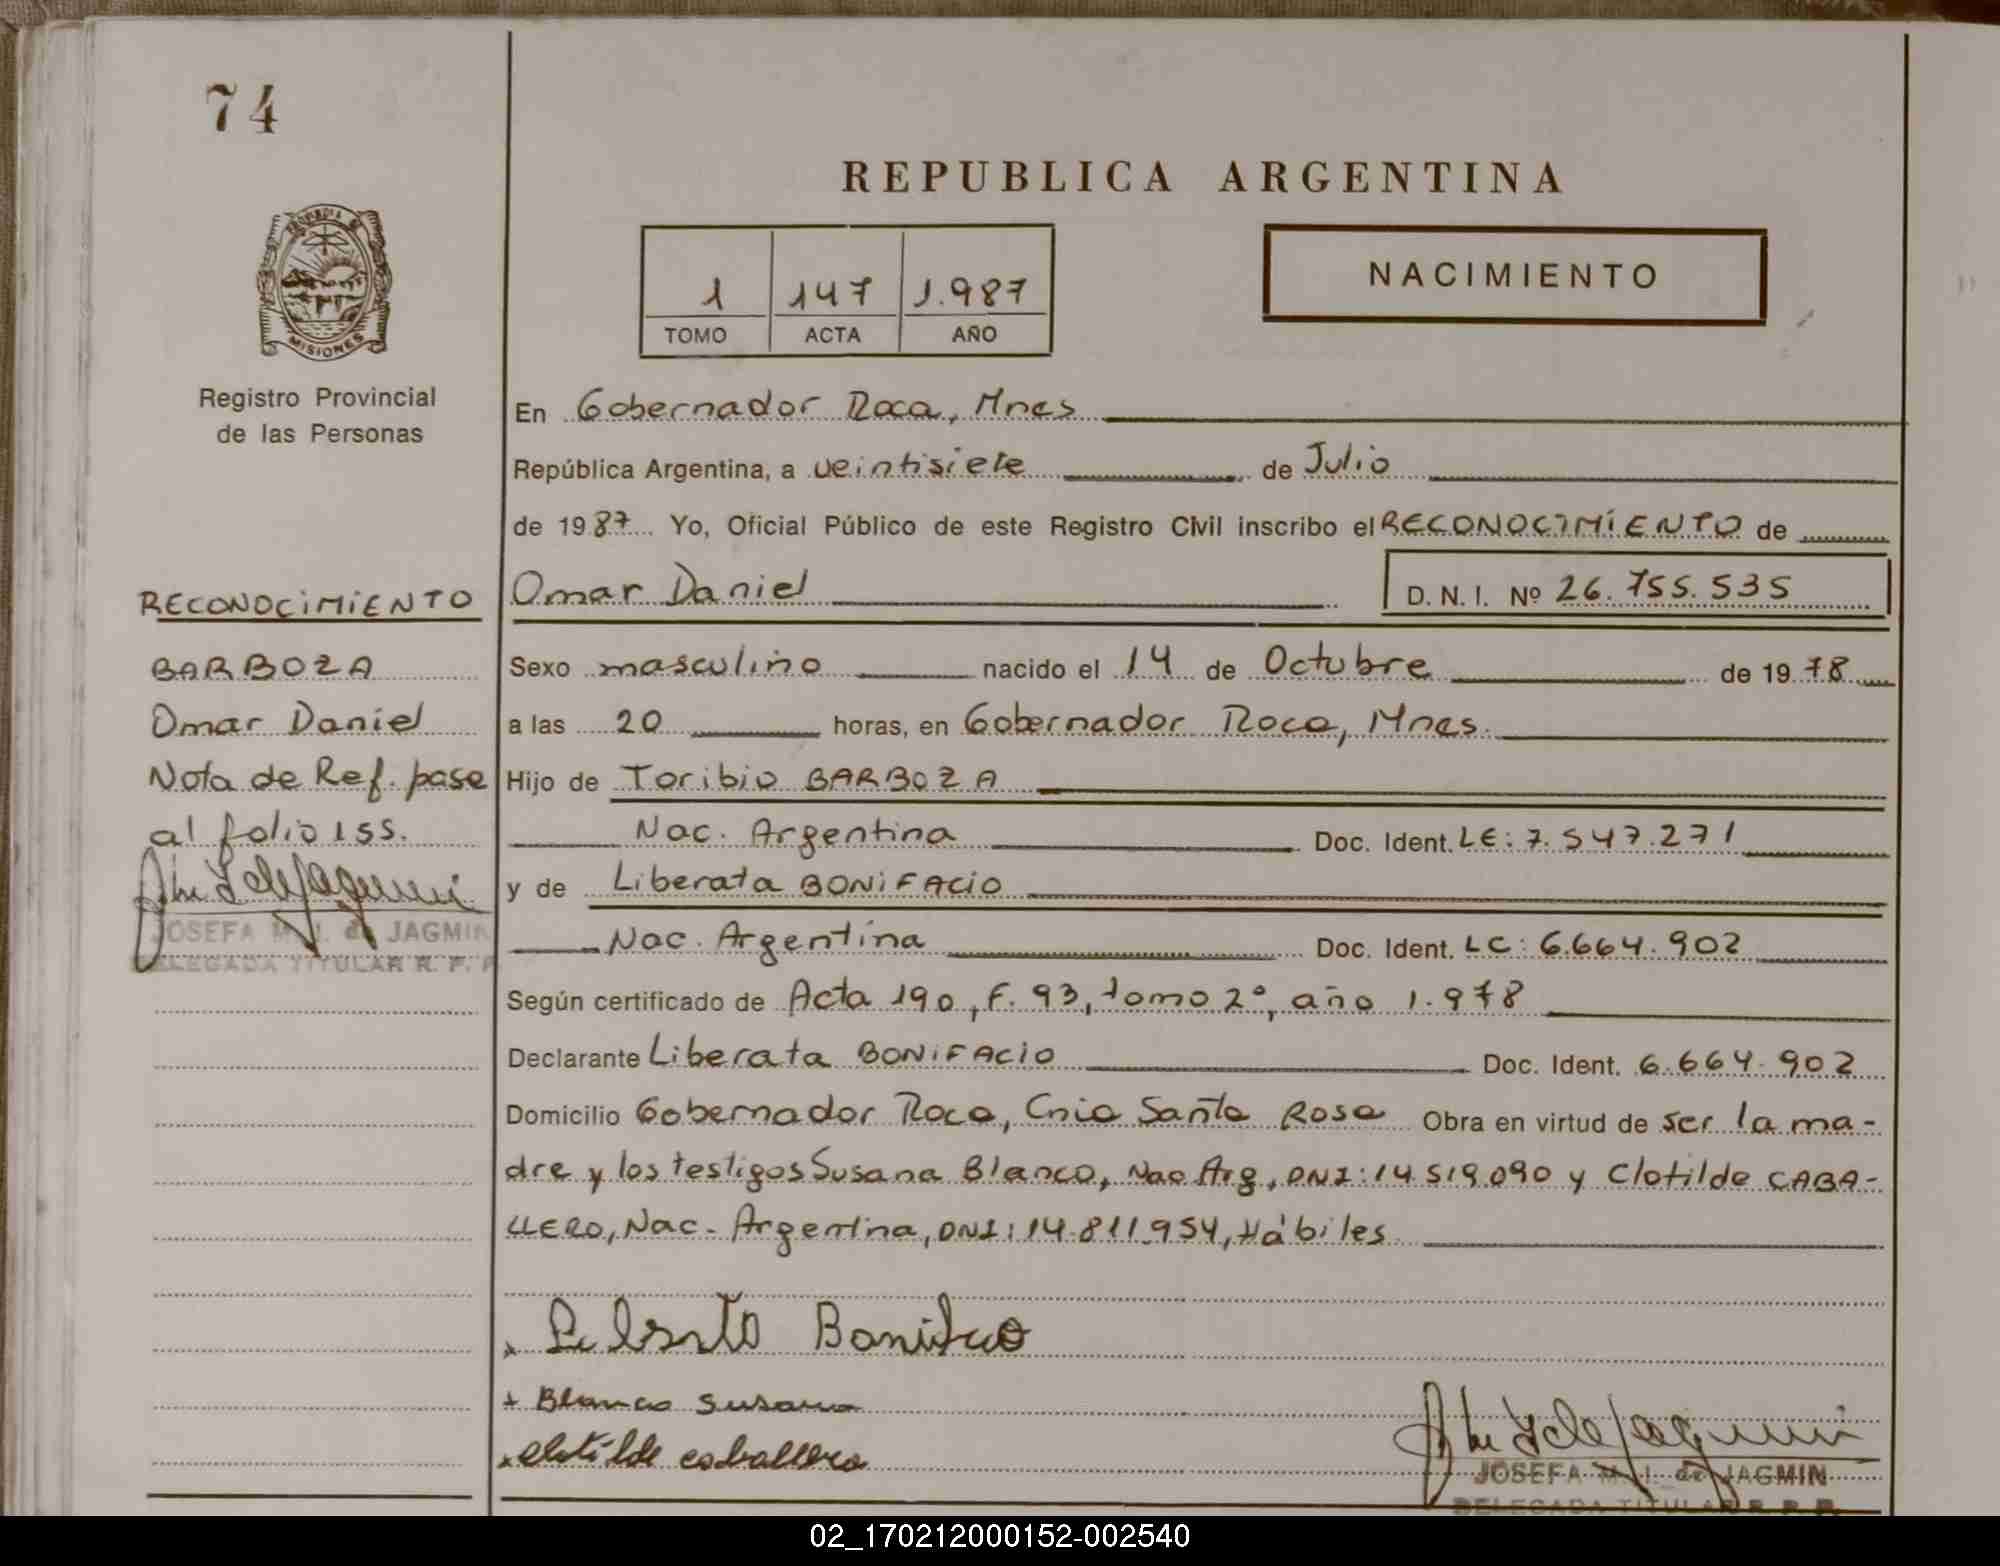 74
REPUBLICA ARGENTINA
PROVINCIA DE
MISIONES
1 147 1.987
TOMO ACTA AÑO
NACIMIENTO
Registro Provincial
de las Personas
En Gobernador Roca, Mnes
República Argentina, a veintisiete de Julio
de 1987 Yo, Oficial Público de este Registro Civil inscribo el RECONOCIMIENTO de
Omar Daniel D. N. I. Nº 26.755.535
RECONOCIMIENTO
BARBOZA
Omar Daniel
Nota de Ref. pase
al folio 155.
JOSEFA M. I. de JAGMIN
DELEGADA TITULAR R. P. P.
Sexo masculino nacido el 14 de Octubre de 1978
a las 20 horas, en Gobernador Roca, Mnes.
Hijo de Toribio BARBOZA
Nac. Argentina Doc. Ident. LE: 7.547.271
y de Liberata BONIFACIO
Nac. Argentina Doc. Ident. LC: 6.664.902
Según certificado de Acta 190, F. 93, tomo 2º, año 1.978
Declarante Liberata BONIFACIO Doc. Ident. 6.664.902
Domicilio Gobernador Roca, Cnia Santa Rosa Obra en virtud de ser la ma-
dre y los testigos Susana Blanco, Nac Arg, DNI: 14.519.090 y Clotilde CABA-
LLERO, Nac. Argentina, DNI: 14.811.954, Hábiles
Bonifacio
+ Blanco Susana
Clotilde caballero
JOSEFA M. I. de JAGMIN
DELEGADA TITULAR R. P. P.
02_170212000152-002540